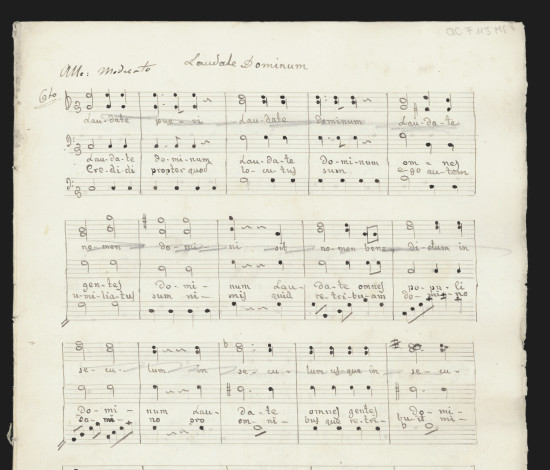 Laudate Dominum
Allo: Moderato
6to
Lau-date pue-ri Lau-date dominum Lau-da-te
Lau-da-te do-mi-num Lau-da-te do-mi-num om-nes
Cre-di-di propter quod lo-cu-tus sum e-go autem
no-men do-mi-ni sit no-men bene di-ctum in
gentes Do-mi-num Lau-da-te omnes po-pu-li
u-mi-lia-tus sum ni-mis quid re-tri-bu-am do-mi-no
se-cu-lum in se-cu-lum us-que in se-cu-
Do-mi-num Lau-da-te omnes gentes Do-mi-
do-mi-no pro om-ni-bus que re-tri-bu-it mi-